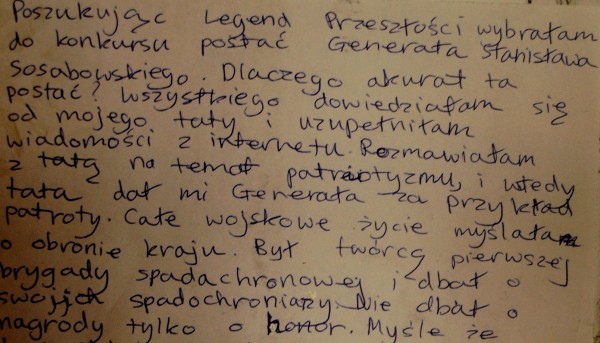 Poszukując Legend Przeszłości wybrałam
do konkursu postać Generała Stanisława
Sosabowskiego. Dlaczego akurat ta
postać? Wszystkiego dowiedziałam się
od mojego taty i uzupełniłam
wiadomości z internetu. Rozmawiałam
z tatą na temat patriotyzmu, i wtedy
tata dał mi Generała za przykład
patroty. Całe wojskowe życie myślałam
o obronie kraju. Był twórcą pierwszej
brygady spadachronowej i dbał o
swojch spadochroniarzy. Nie dbał o
nagrody tylko o honor. Myśle że